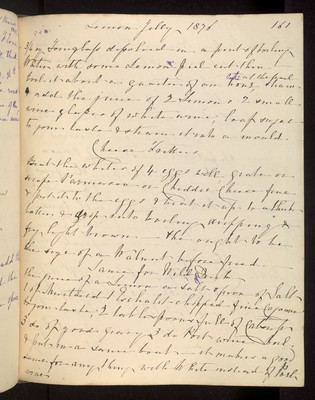 Lemon Jelly 1876 161
3/4 oz Isinglass dissolved in a pint of boiling
Water with some lemon peel cut thin
boil it about a quarter of an hour, strain
& add the juice of 2 lemons 2 small
wine glasses of white wine, loaf sugar
to your taste & strain it into a mould
Cheese
Beat the whites of 4 eggs well grate or
scrape Parmesan or Cheddar Cheese fine
& put it to the eggs & beat it up to a thick
batter & drop into boiling dripping &
fry light brown. The ought to be
the size of a Walnut before fried
Sauce for Wild Duck
The juice of a Lemon a Salt spoon of Salt
1 of Mustard 1 Eschalot chopped fine Cayenne
to your taste, 2 tablespoonsfull of Catsup
3 do of good gravy 3 do Port wine
& put in a sauce boat it makes a good
sauce for any thing with White instead of Port
wine